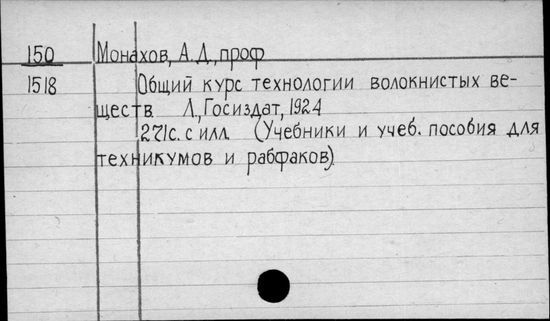 150 Монахов, А.Д., проф
1518 Общий курс технологии волокнистых ве-
ществ Л, Госиздат, 1924
271с. с илл (Учебники и учеб. пособия для
техникумов и рабфаков)